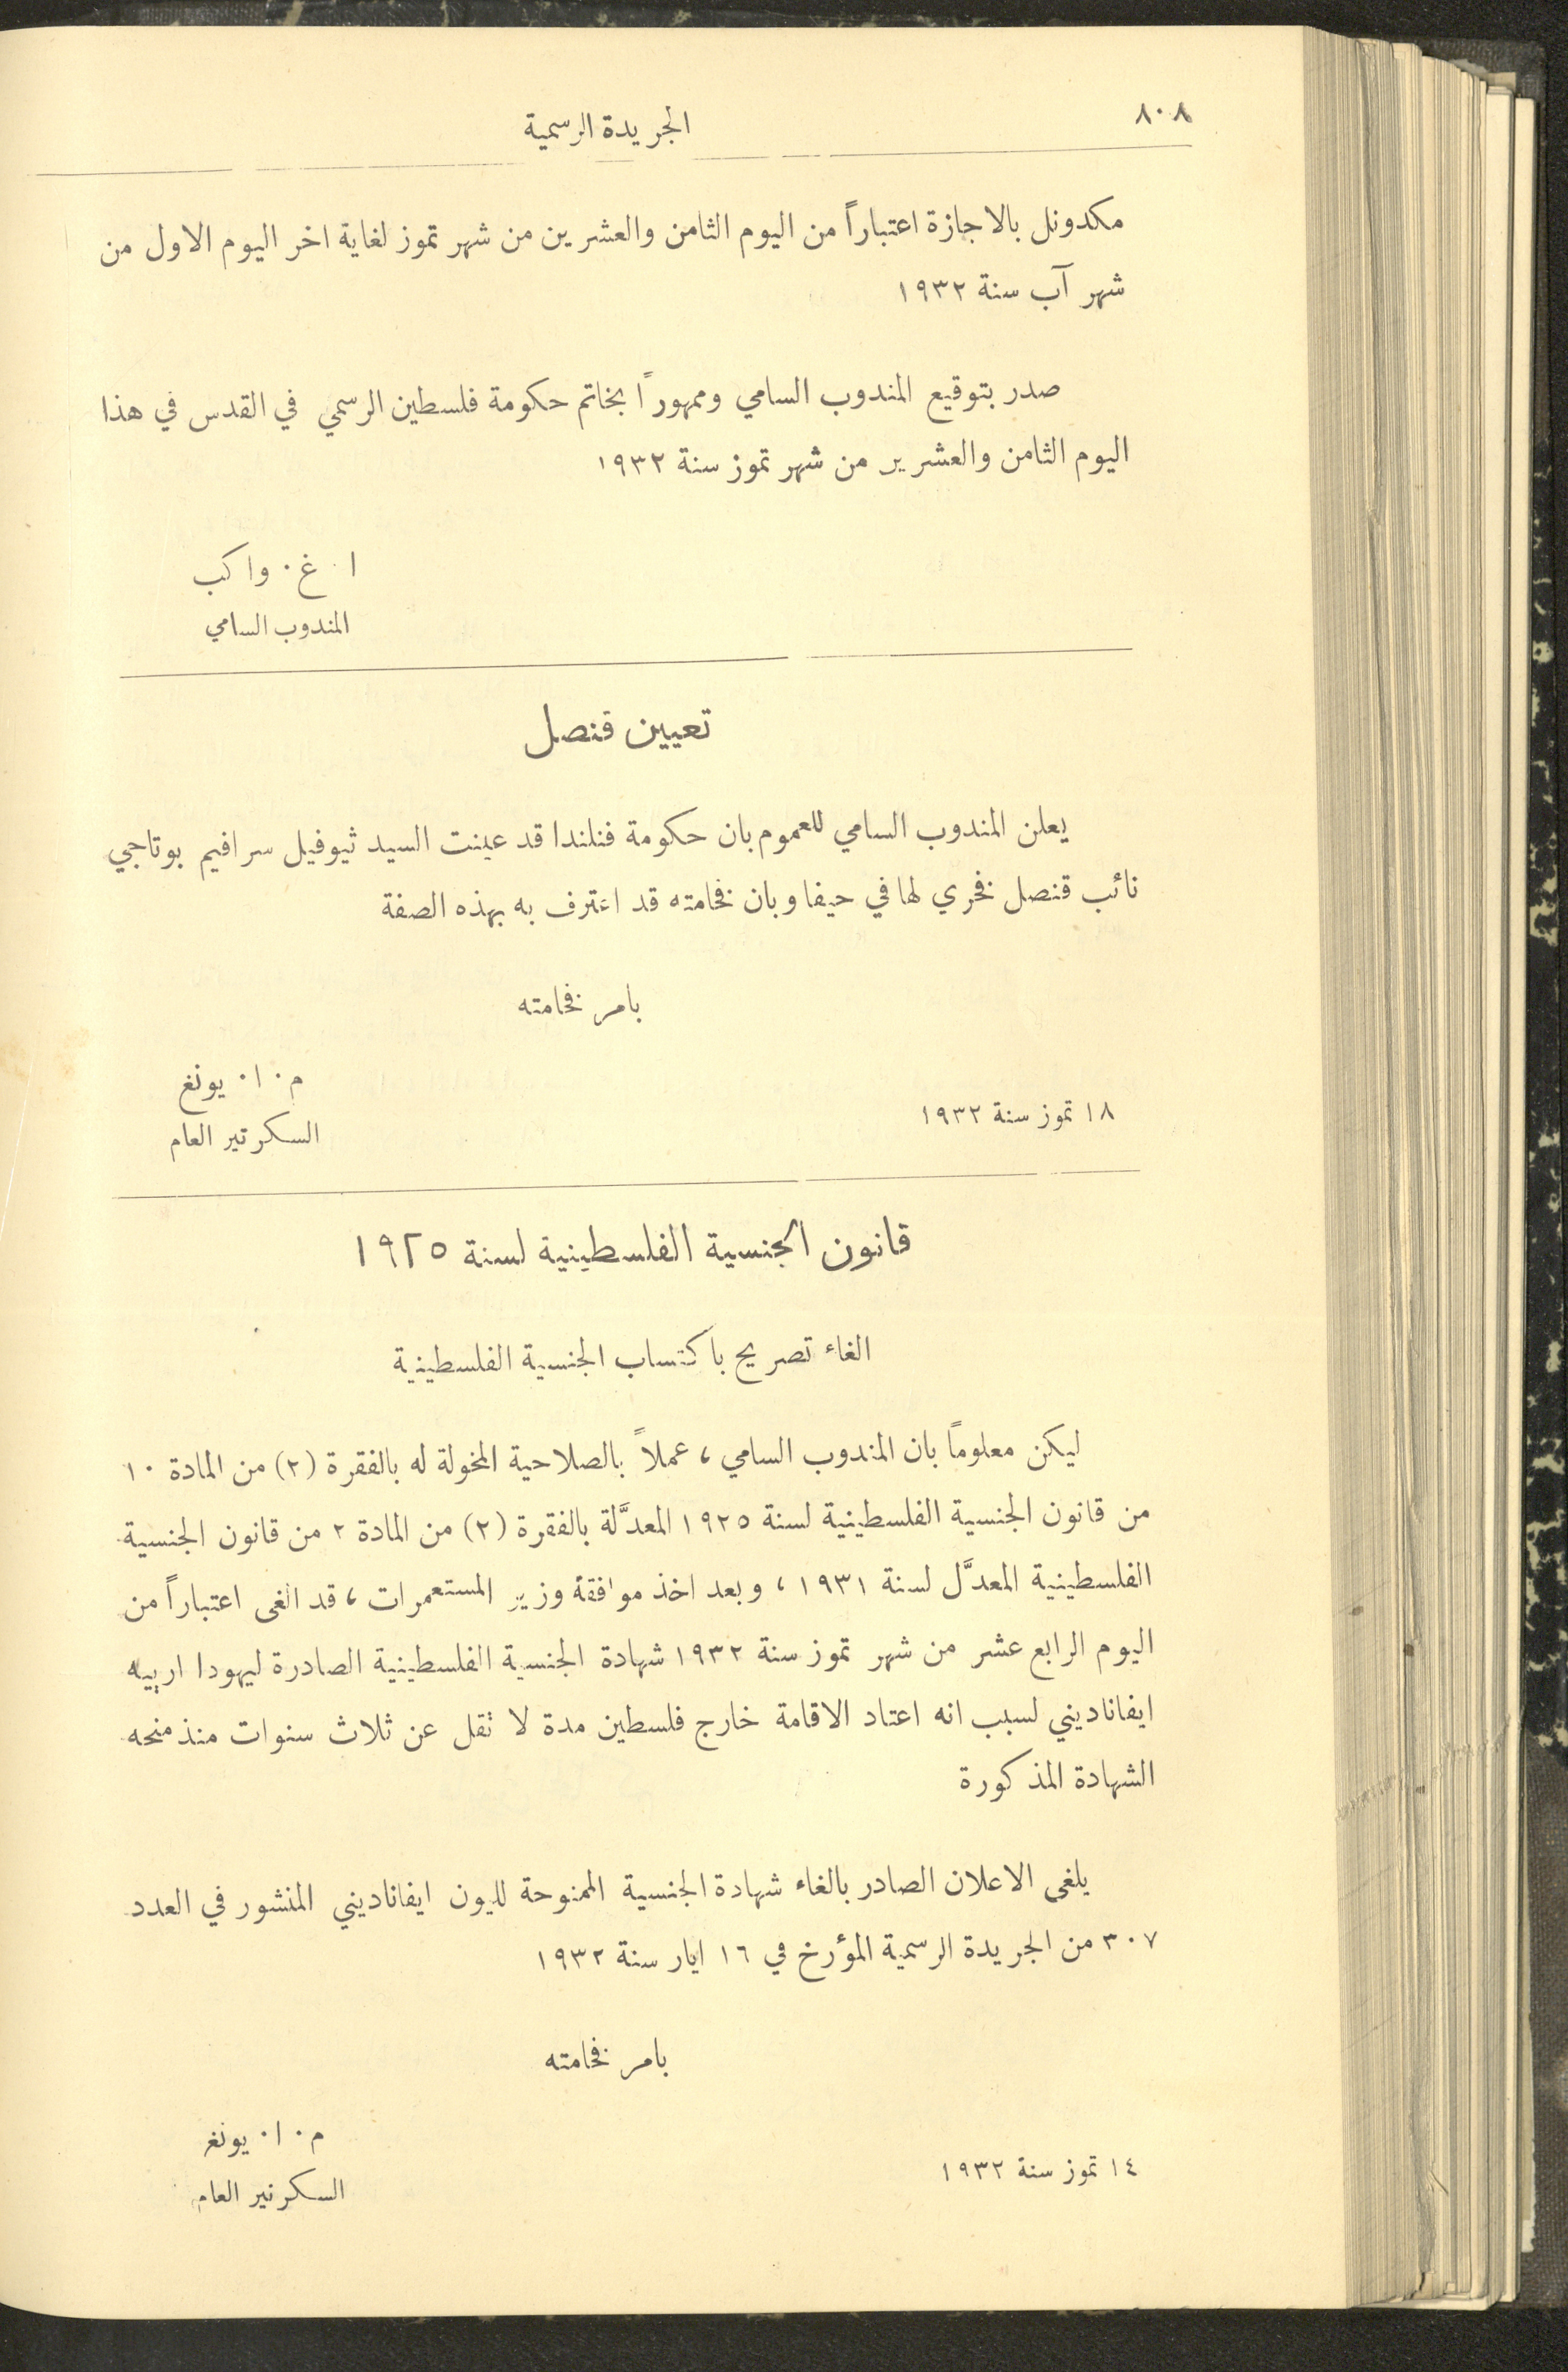 ٨٠٨
الجريدة الرسمية
مكدونل بالاجازة اعتباراً من اليوم الثامن والعشرين من شهر تموز لغاية اخر اليوم الاول من
شهر آب سنة ١٩٣٢
صدر بتوقيع المندوب السامي وممهوراً بخاتم حكومة فلسطين الرسمي في القدس في هذا
اليوم الثامن والعشرين من شهر تموز سنة ١٩٣٢
ا. غ. واكب
المندوب السامي
تعيين قنصل
يعلن المندوب السامي للعموم بان حكومة فنلندا قد عينت السيد ثيوفيل سرافيم بوتاجي
نائب قنصل فخري لها في حيفا وبان فخامته قد اعترف به بهذه الصفة
بامر فخامته
م. ا. يونغ
السكرتير العام
١٨ تموز سنة ١٩٣٢
قانون الجنسية الفلسطينية لسنة ١٩٢٥
الغاء تصريح باكتساب الجنسية الفلسطينية
ليكن معلوماً بان المندوب السامي، عملاً بالصلاحية المخولة له بالفقرة (٢) من المادة ١٠
من قانون الجنسية الفلسطينية لسنة ١٩٢٥ المعدَّلة بالفقرة (٢) من المادة ٢ من قانون الجنسية
الفلسطينية المعدَّل لسنة ١٩٣١، وبعد اخذ موافقة وزير المستعمرات، قد الغى اعتباراً من
اليوم الرابع عشر من شهر تموز سنة ١٩٣٢ شهادة الجنسية الفلسطينية الصادرة ليهودا اربيه
ايفاناديني لسبب انه اعتاد الاقامة خارج فلسطين مدة لا تقل عن ثلاث سنوات منذ منحه
الشهادة المذكورة
يلغى الاعلان الصادر بالغاء شهادة الجنسية الممنوحة لليون ايفاناديني المنشور في العدد
٣٠٧ من الجريدة الرسمية المؤرخ في ١٦ ايار سنة ١٩٣٢
بامر فخامته
م. ا. يونغ
السكرتير العام
١٤ تموز سنة ١٩٣٢